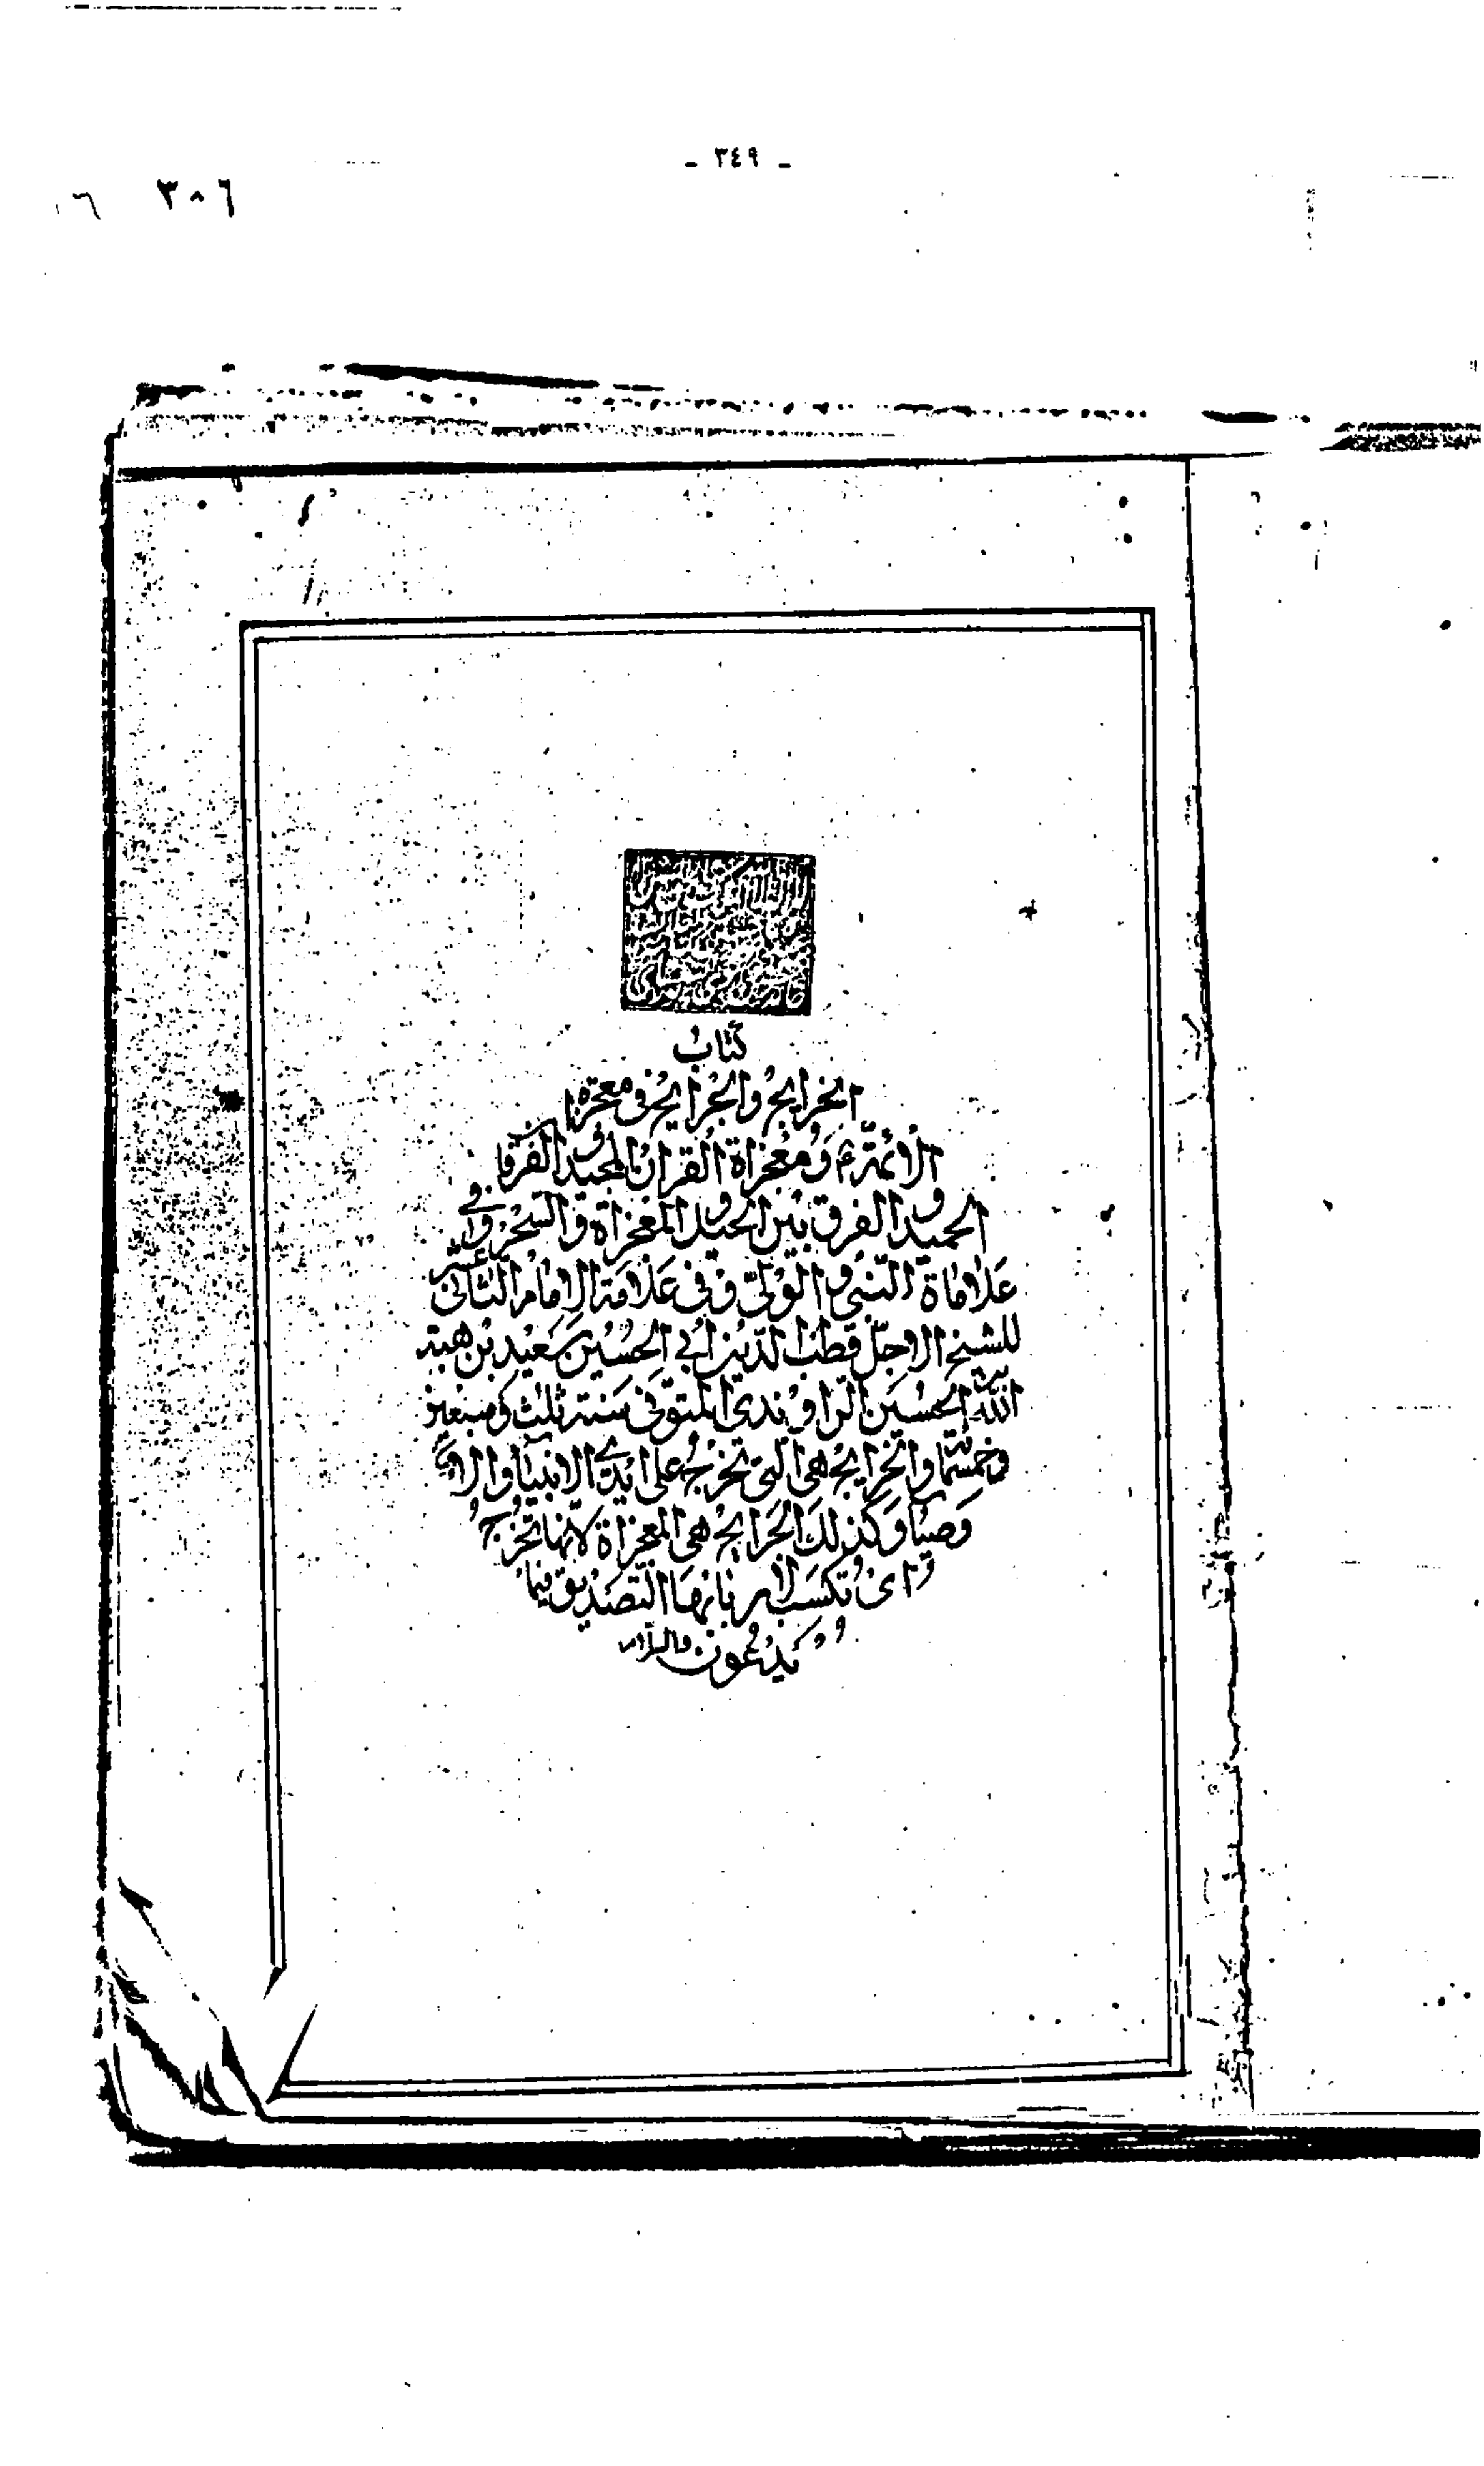 - ٣٤٩ -
٣٠٦
كتاب
الخرايج والجرايح فى معجزة
الائمة ع ومعجزاة القران المجيد والفرقان
الحميد والفرق بين الحيل والمعجزاة والسحر وفي
علاماة النبى والولى وفى علامة الامام الثانى عشر
للشيخ الاجل قطب الدين ابي الحسين سعيد بن هبة
الله بن الحسين الراوندى المتوفى سنة ثلث وسبعين
وخمسمائة والخرايج هى التى تخرج على ايدي الانبيآ والاو
وصيآ وكذلك الجرايح هى المعجزاة لانها تخرج
التصديق فيما
يدعون والسلام